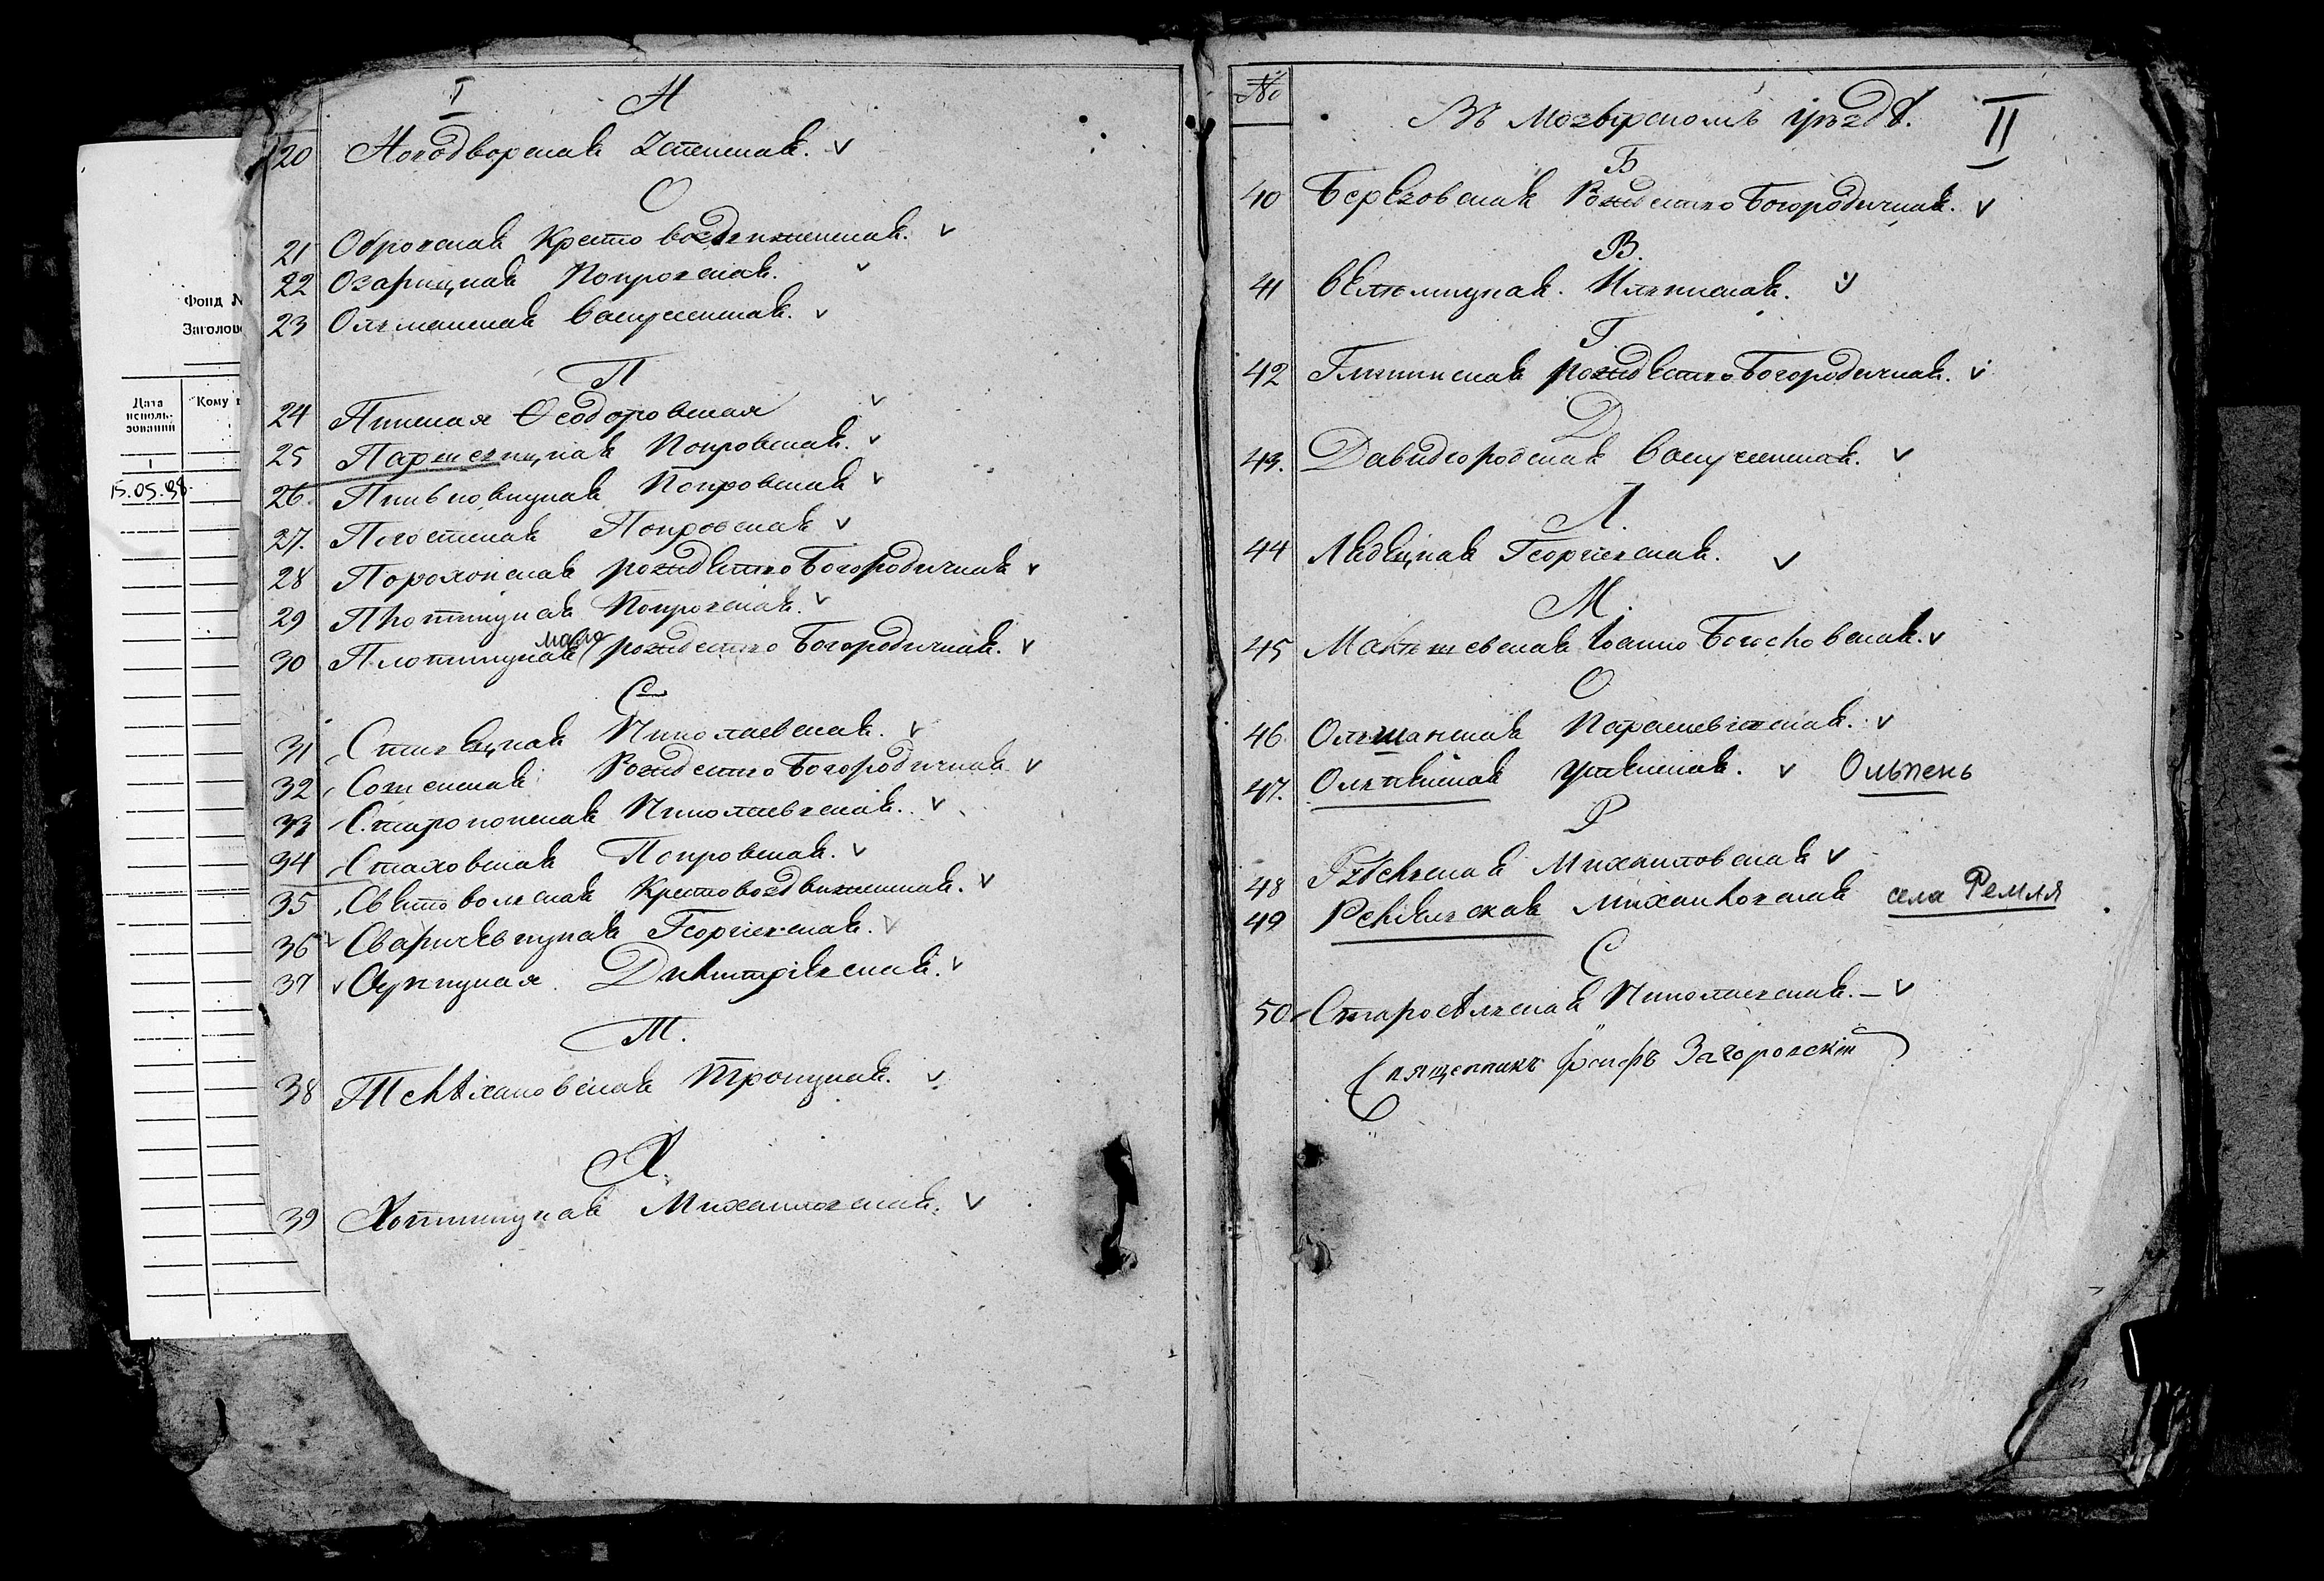 Фонд №
Заголово
Дата
исполь-
зования
Кому
1
15.05.98.
I
Н
20 Новодворская Успенская. v
О
21 Обровская Кресто воздвиженская. v
22 Озарицкая Покровская. v
23 Ольманская Воскресенская. v
П
24 Пинская Ѳеодоровская v
25 Паршевицкая Покровская. v
26. Пинковицкая Покровская v
27. Погостская Покровская v
28 Порохонская рождество Богородичная v
29 Плотницкая Покровская. v
мало
30 Плотницкая рождество Богородичная. v
С
31 Николаевская. v
32 Сошенская Рождество Богородичная v
33 Староконская Николаевская. v
34 Стаховская Покровская. v
35 Святовольская Крестовоздвиженская. v
36 v Сваричевицкая Георгіевская. v
37 v Димитріевская. v
Т.
38 Телѣхановская Троицкая. v
Х.
39 Хотиницкая Михаиловская. v
№
Въ Мозырскомъ уѣздѣ. II
Б
40 Березовская Рождество Богородичная. v
В.
41 Велемицкая. Ильинская. v
Г
42 Глинская рождество Богородичная. v
Д
43. Давидгородская Воскресенская. v
Л.
44 Лядецкая Георгіевская. v
М.
45 Іоанно Богословская. v
О
46. Ольшанская Параскевіевская. v
47. Ольпенская Успенская. v Ольпень
Р
48 Михаиловская v
49 Ремельская Михаиловская села Ремля
С
50 Старосельская Николаевская. — v
Священникъ Іосифъ Загоровскій